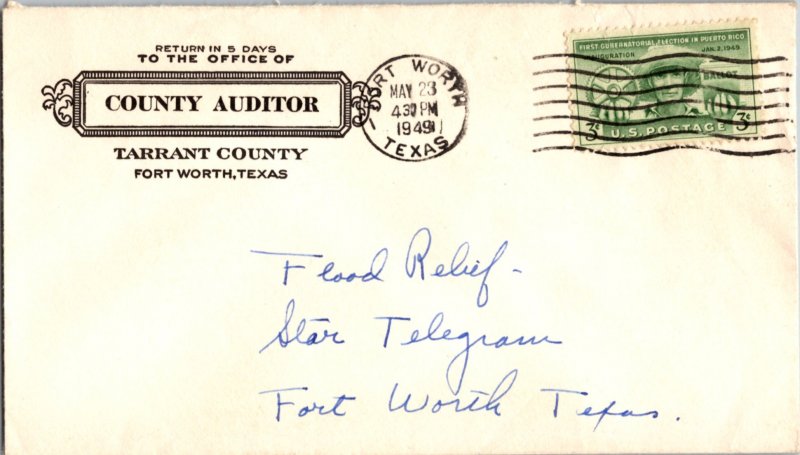 RETURN IN 5 DAYS
TO THE OFFICE OF
COUNTY AUDITOR
TARRANT COUNTY
FORT WORTH, TEXAS
FORT WORTH
MAY 23
430 PM
1949
TEXAS
FIRST GUBERNATORIAL ELECTION IN PUERTO RICO
INAUGURATION JAN. 2, 1949
BALLOT
3¢ U.S. POSTAGE 3¢
Flood Relief -
Star Telegram
Fort Worth Texas.